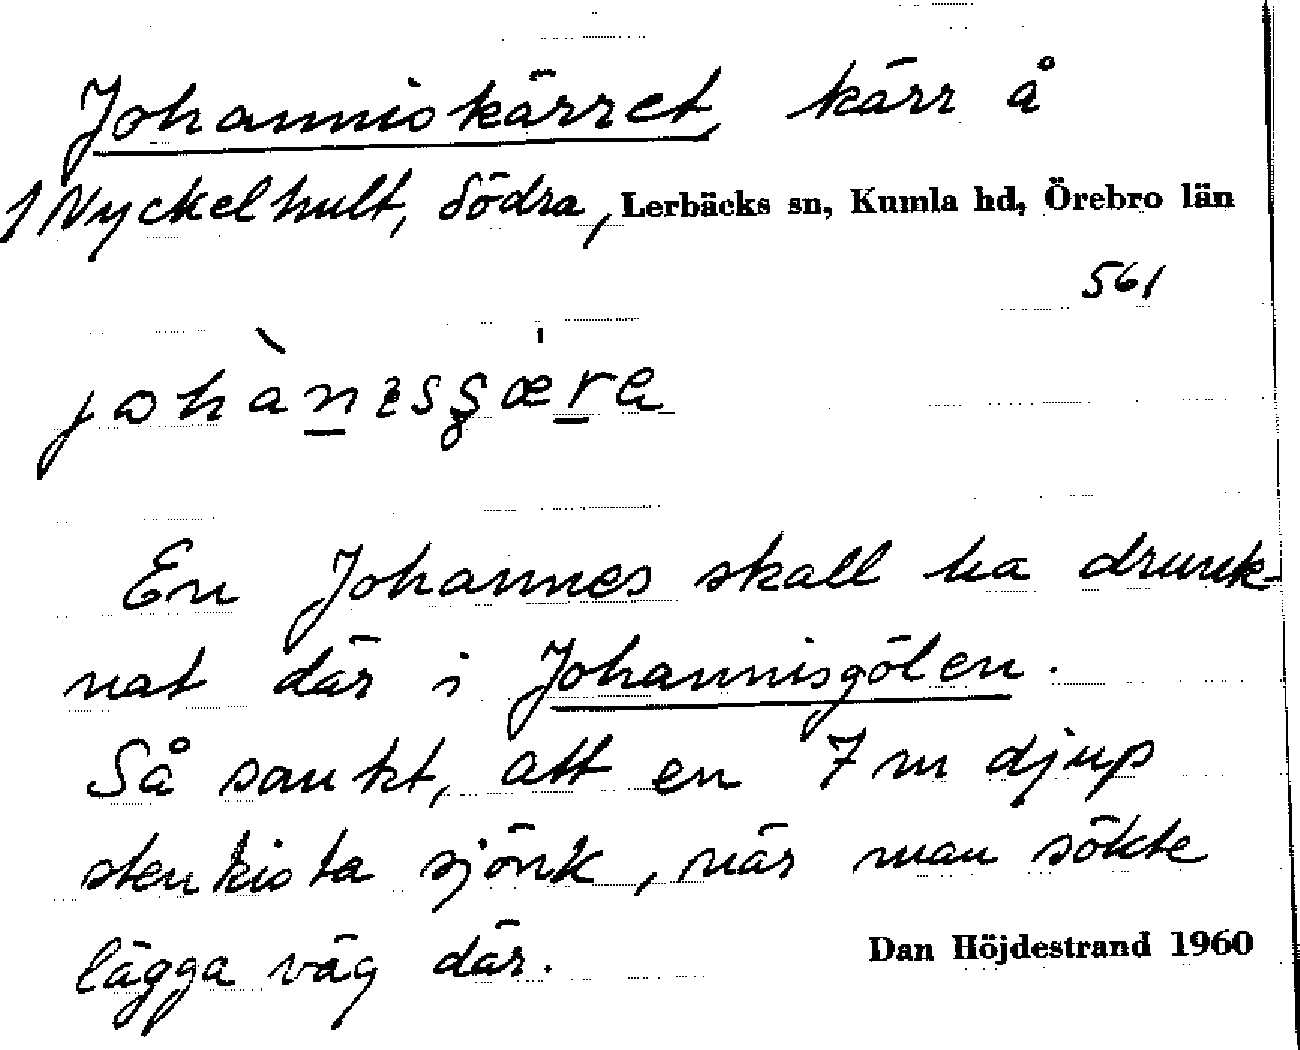 Johanniskärret, kärr å
1 Nyckelhult, Södra, Lerbäcks sn, Kumla hd, Örebro län
561
En Johannes skall ha drunk-
nat där i Johannisgölen.
Så sankt, att en 7 m djup
stenkista sjönk, när man sökte
lägga väg där.
Dan Höjdestrand 1960